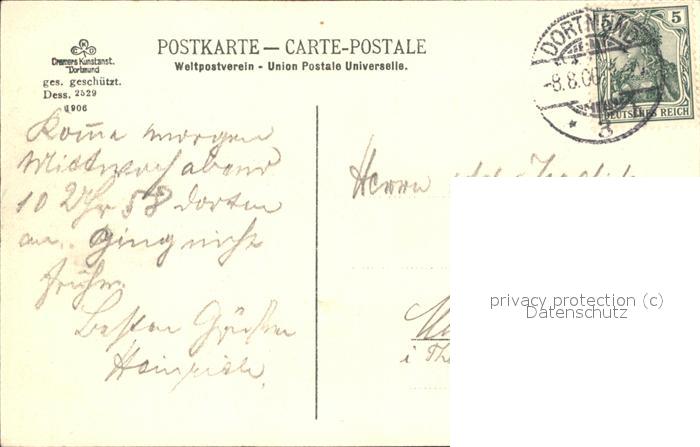 Cramers Kunstanst.
Dortmund
ges. geschützt.
Dess. 2529
1906
POSTKARTE — CARTE-POSTALE
Weltpostverein - Union Postale Universelle.
DORTMUND
-8.8.06
* 3
5
DEUTSCHES REICH
Kome morgen
Mittwoch abend
10 Uhr 58 dorten
an. Ging nicht
früher.
Besten Grüßen
Heinrich.
Herrn
i Th
privacy protection (c)
Datenschutz